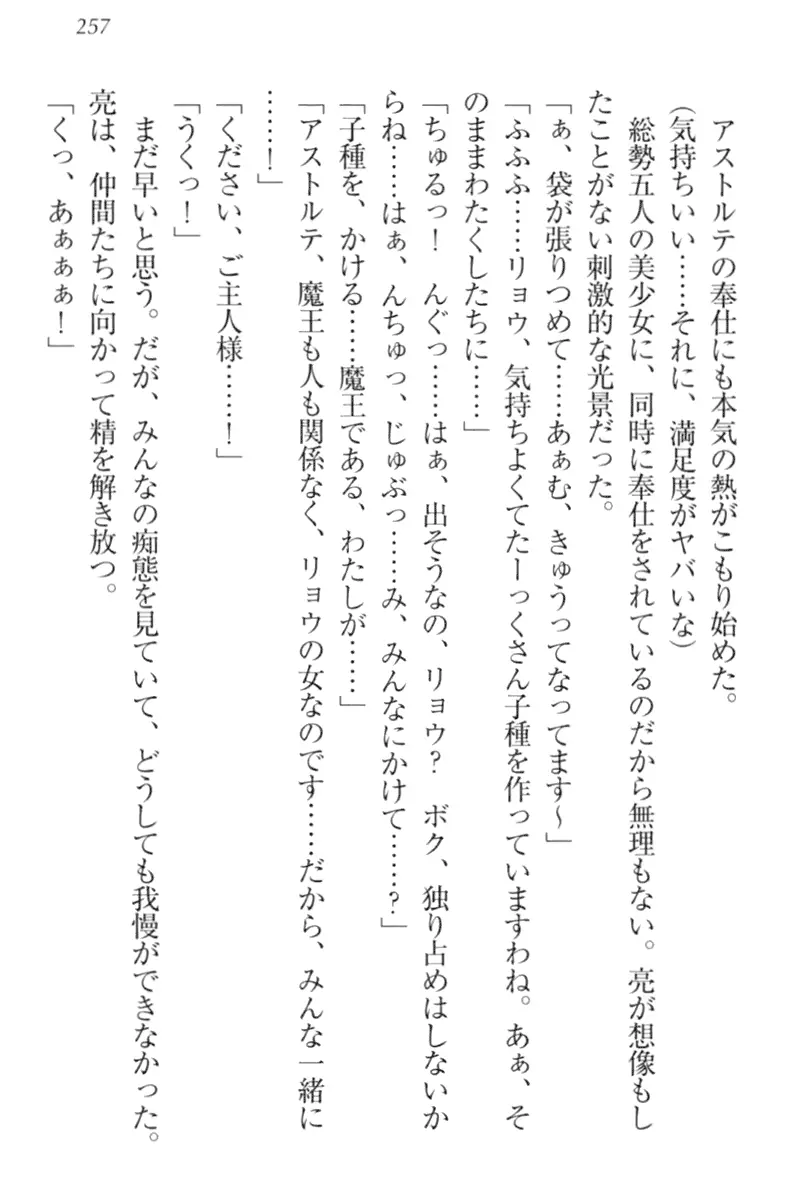 257
アストルテの奉仕にも本気の熱がこもり始めた。
(気持ちいい……それに、満足度がヤバいな)
総勢五人の美少女に、同時に奉仕をされているのだから無理もない。亮が想像もし
たことがない刺激的な光景だった。
「ぁ、袋が張りつめて……あぁむ、きゅうってなってます～」
「ふふふ……リョウ、気持ちよくてたーっくさん子種を作っていますわね。あぁ、そ
のままわたくしたちに……」
「ちゅるっ！　んぐっ……はぁ、出そうなの、リョウ？　ボク、独り占めはしないか
らね……はぁ、んちゅっ、じゅぶっ……み、みんなにかけて……？」
「子種を、かける……魔王である、わたしが……」
「アストルテ、魔王も人も関係なく、リョウの女なのです……だから、みんな一緒に
……！」
「ください、ご主人様……！」
「うくっ！」
まだ早いと思う。だが、みんなの痴態を見ていて、どうしても我慢ができなかった。
亮は、仲間たちに向かって精を解き放つ。
「くっ、あぁぁぁ！」